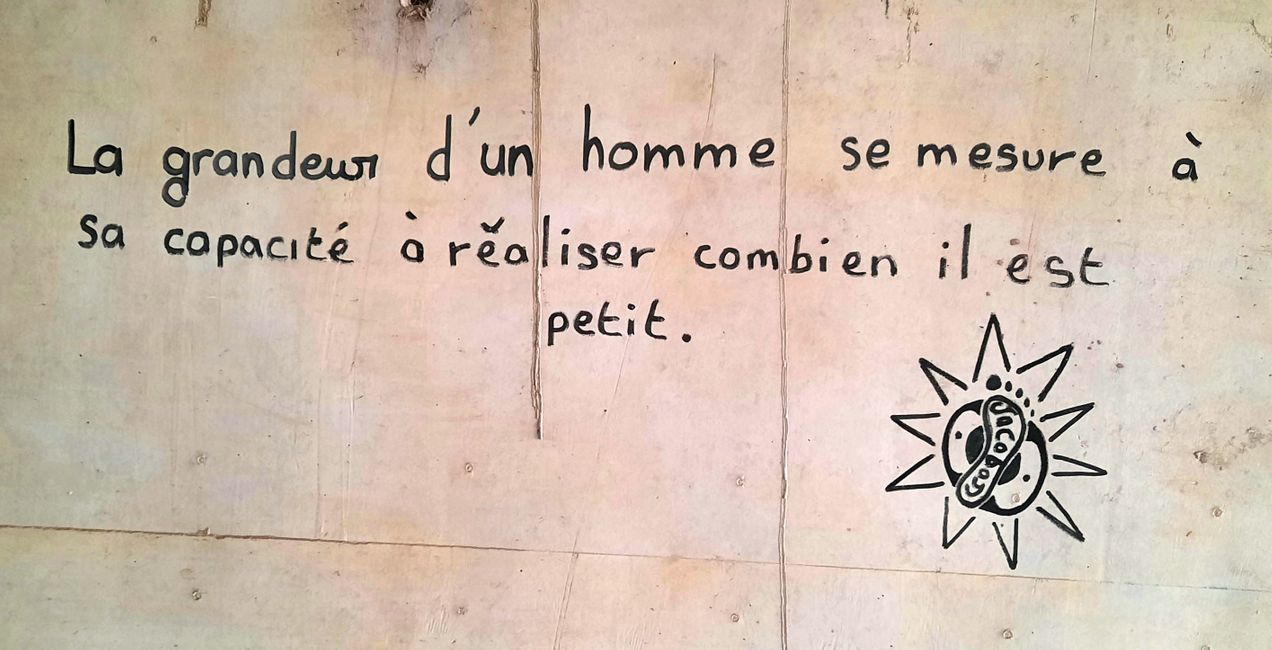 La grandeur d'un homme se mesure à
sa capacité à réaliser combien il est
petit.